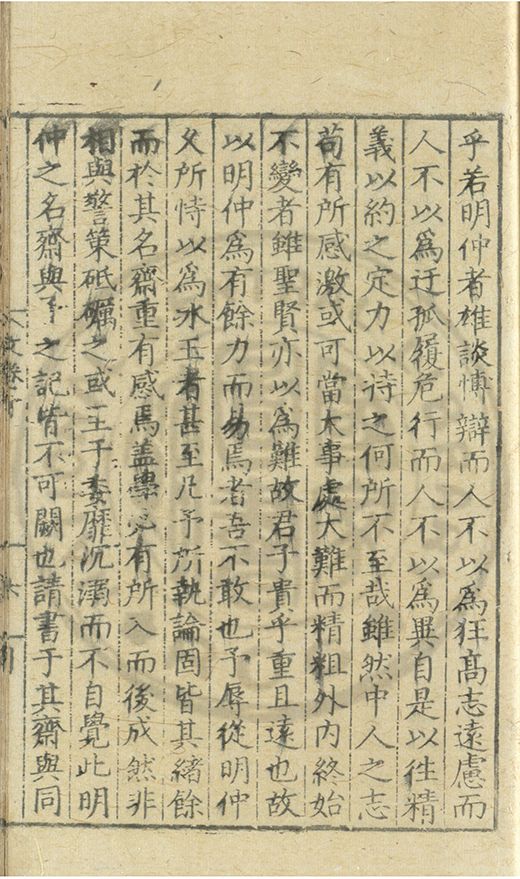 乎若明仲者雄談博辯而人不以為狂髙志遠慮而
人不以為迂孤履危行而人不以為異自是以往精
義以約之定力以待之何所不至哉雖然中人之志
苟有所感激或可當大事處大難而精粗外内終始
不變者雖聖賢亦以為難故君子貴乎重且遠也故
以明仲為有餘力而易焉者吾不敢也予辱從明仲
父所恃以為氷玉者甚至凡予所執論固皆其緒餘
而於其名齋重有感焉盖學必有所入而後成然非
相與警策砥礪之或至于委靡沉溺而不自覺此明
仲之名齋與予之記皆不可闕也請書于其齋與同
文卷下